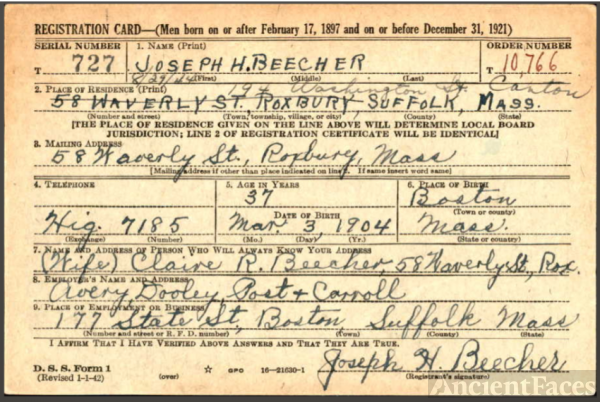 REGISTRATION CARD—(Men born on or after February 17, 1897 and on or before December 31, 1921)
SERIAL NUMBER 1. NAME (Print) ORDER NUMBER
T 727 JOSEPH H. BEECHER T 10,766
(First) (Middle) (Last)
194 Washington St. Canton
2. PLACE OF RESIDENCE (Print)
58 WAVERLY ST. ROXBURY SUFFOLK, MASS.
(Number and street) (Town, township, village, or city) (County) (State)
[THE PLACE OF RESIDENCE GIVEN ON THE LINE ABOVE WILL DETERMINE LOCAL BOARD
JURISDICTION; LINE 2 OF REGISTRATION CERTIFICATE WILL BE IDENTICAL]
3. MAILING ADDRESS
58 Waverly St., Roxbury, Mass
[Mailing address if other than place indicated on line 2. If same insert word same]
4. TELEPHONE 5. AGE IN YEARS 6. PLACE OF BIRTH
37 Boston
DATE OF BIRTH (Town or county)
Hig. 7185 Mar. 3, 1904 Mass.
(Exchange) (Number) (Mo.) (Day) (Yr.) (State or country)
7. NAME AND ADDRESS OF PERSON WHO WILL ALWAYS KNOW YOUR ADDRESS
(Wife) Claire R. Beecher, 58 Waverly St., Rox.
8. EMPLOYER'S NAME AND ADDRESS
Avery, Dooley, Post + Carroll
9. PLACE OF EMPLOYMENT OR BUSINESS
177 State St, Boston Suffolk Mass
(Number and street or R. F. D. number) (Town) (County) (State)
I AFFIRM THAT I HAVE VERIFIED ABOVE ANSWERS AND THAT THEY ARE TRUE.
Joseph H. Beecher
D. S. S. Form 1
(Revised 1-1-42) (over) ☆ GPO 16—21630-1 (Registrant's signature)
AncientFaces